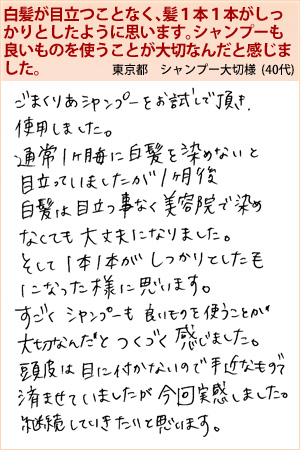 白髪が目立つことなく、髪1本1本がしっ
かりとしたように思います。シャンプーも
良いものを使うことが大切なんだと感じま
した。
東京都　シャンプー大切様 (40代)
ごまくりあシャンプーをお試しで頂き、
使用しました。
通常1ヶ月毎に白髪を染めないと
目立っていましたが1ヶ月後
白髪は目立つ事なく美容院で染め
なくても大丈夫になりました。
そして1本1本がしっかりとしたモ
になった様に思います。
すごくシャンプーも良いものを使うことが
大切なんだとつくづく感じました。
頭皮は目に付かないので手近なもので
済ませていましたが今回実感しました。
継続していきたいと思います。